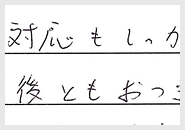 対応もしっか
後ともおつき